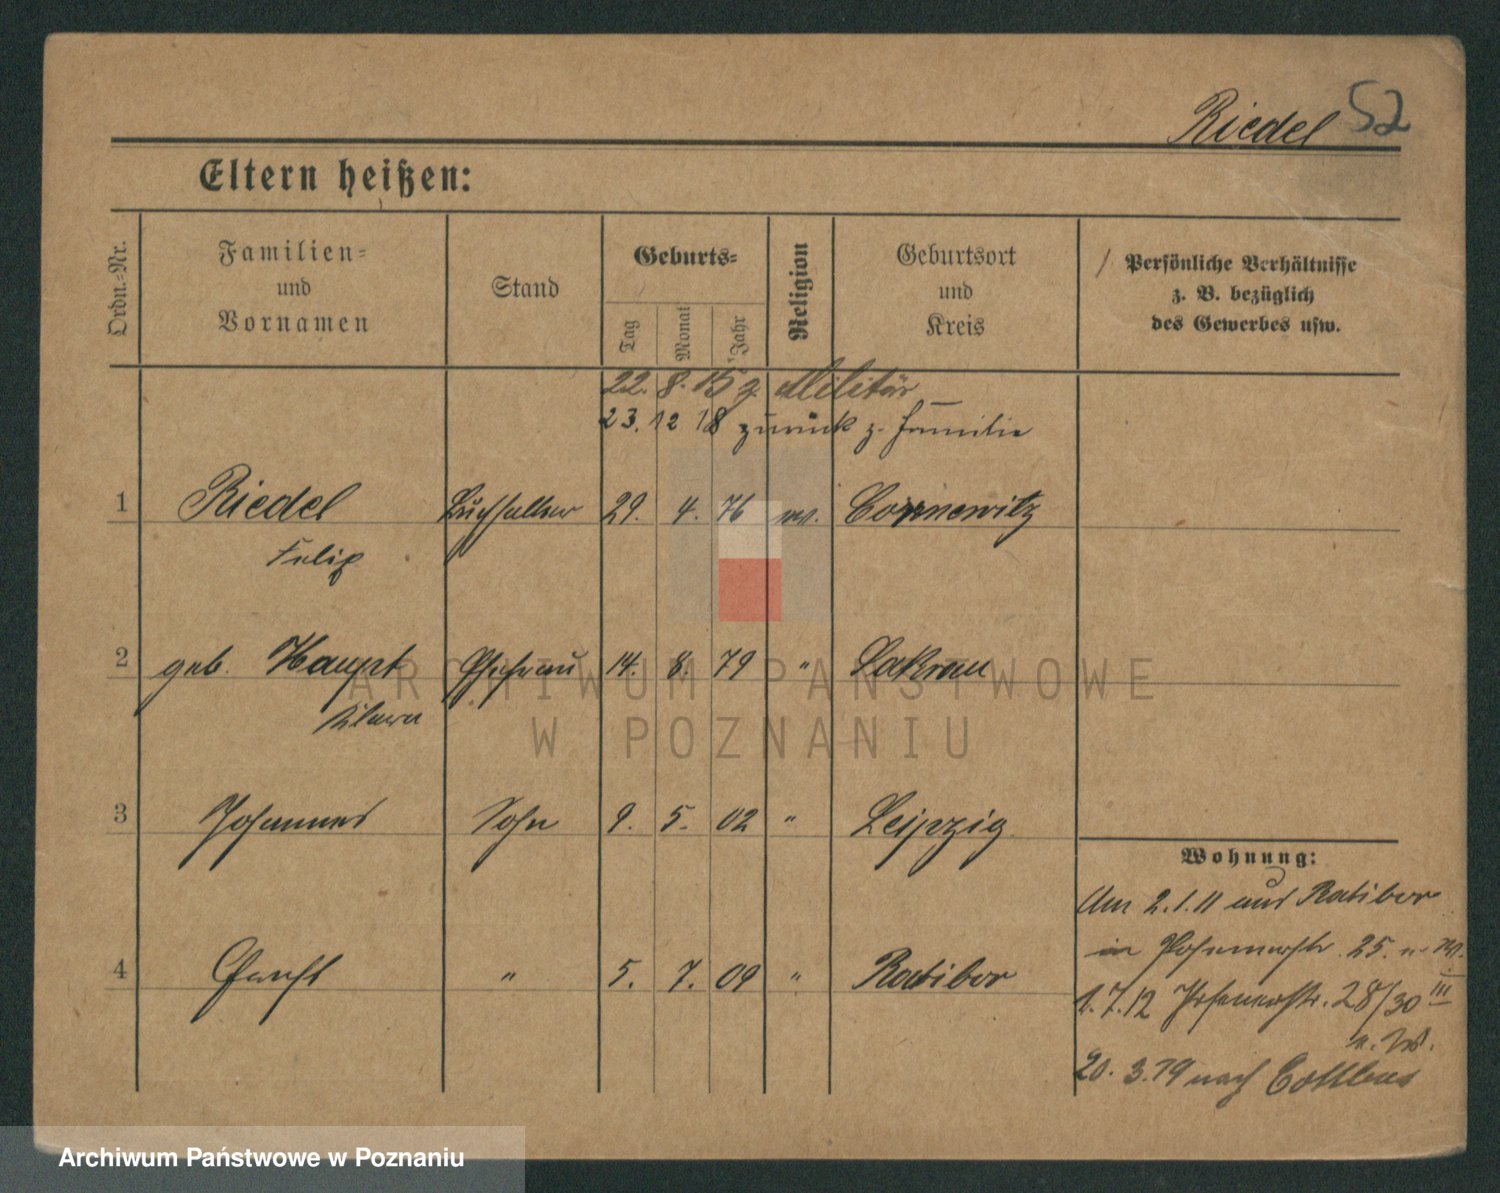 Riedel 52
Eltern heißen:
Ordn.-Nr.
Familien-
und
Vornamen
Stand
Geburts-
Tag
Monat
Jahr
Religion
Geburtsort
und
Kreis
Persönliche Verhältnisse
z. B. bezüglich
des Gewerbes usw.
22. 8. 15 z. Militär
23. 12 18 zurück z. Familie
1 Riedel Buchhalter 29. 4. 76 ev.
Felix
2 geb. Haupt Ehefrau 14. 8. 79 " Sakrau
Klara
3 Johannes Sohn 9. 5. 02 " Leipzig
4 " 5. 7. 09 " Ratibor
Wohnung:
Am 2.1.11 aus Ratibor
in 25.
1.7.12 28/30 III
n. W.
20. 3. 19 nach Cottbus
ARCHIWUM PAŃSTWOWE
W POZNANIU
Archiwum Państwowe w Poznaniu